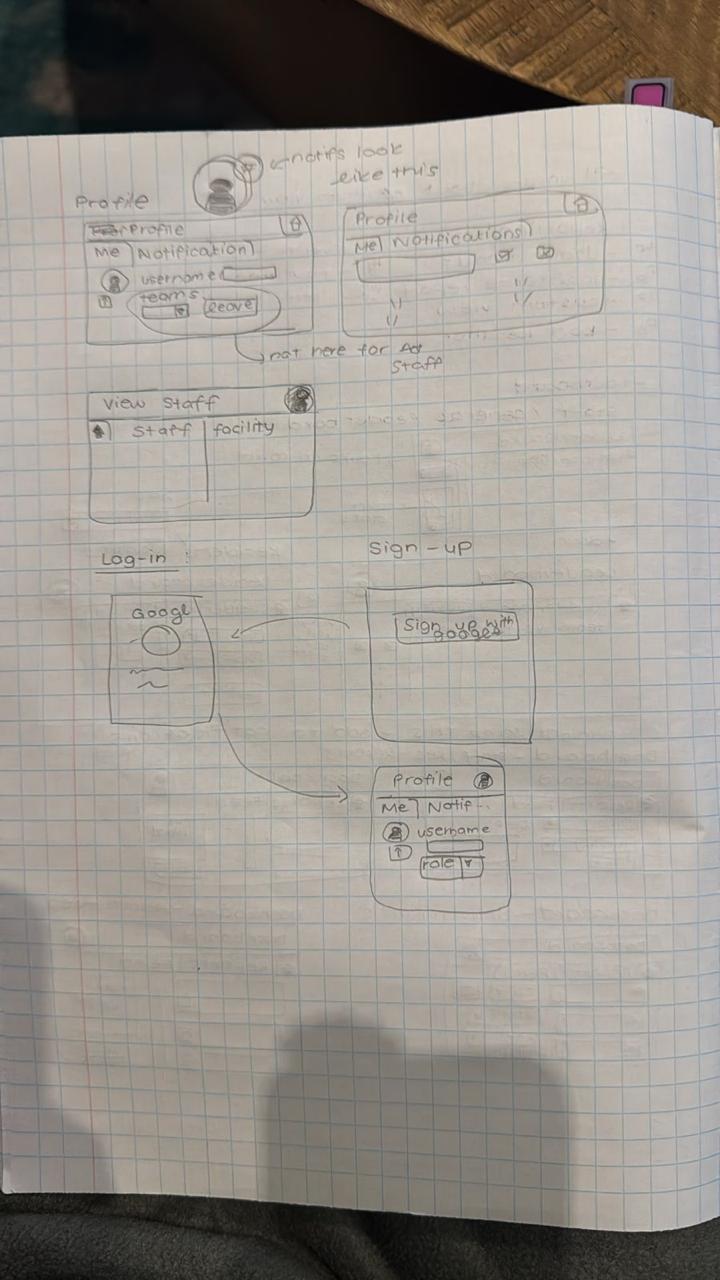 notifs look
like this
Profile
Profile
Me Notification
username
teams
leave
Profile
Me Notifications
not here for
staff
View Staff
Staff facility
Log-in :
Googl
Sign-up
Sign up with
google
Profile
Me Notif--
username
role